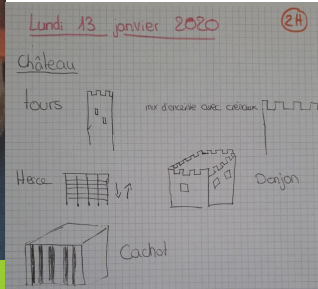 Lundi 13 janvier 2020
2H
Château
tours
mur d'enceinte avec créneaux
Herse
Donjon
Cachot